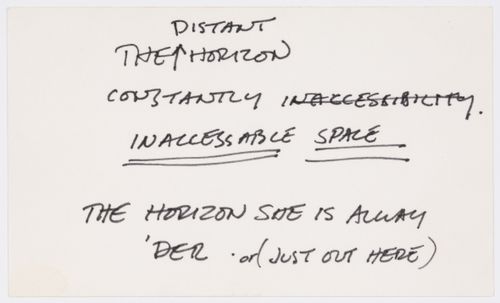 DISTANT
THE↑HORIZON
CONSTANTLY INACCESSIBILITY.
INACCESSABLE SPACE
THE HORIZON SHE IS ALLWAY
'DER . or (JUST OUT HERE)